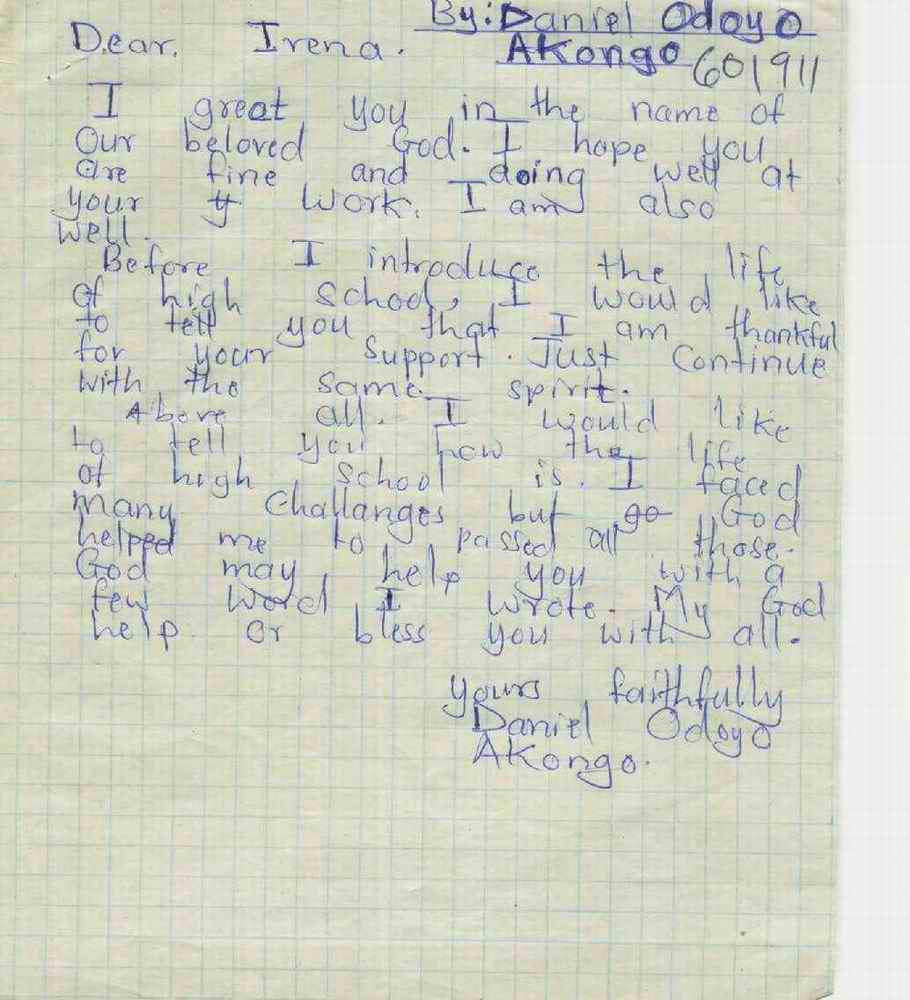 By: Daniel Odoyo
Dear. Irena.
Akongo 601911
I great you in the name of
Our beloved God. I hope you
are fine and doing well at
your work. I am also
well.
Before I introduce the life
of high school, I would like
to tell you that I am thankful
for your support. Just continue
with the same spirit.
Above all. I would like
to tell you how the life
of high school is. I faced
many challanges but go God
helped me to passed all those.
God may help you with a
few word I wrote. My God
help or bless you with all.
yours faithfully
Daniel Odoyo
Akongo.